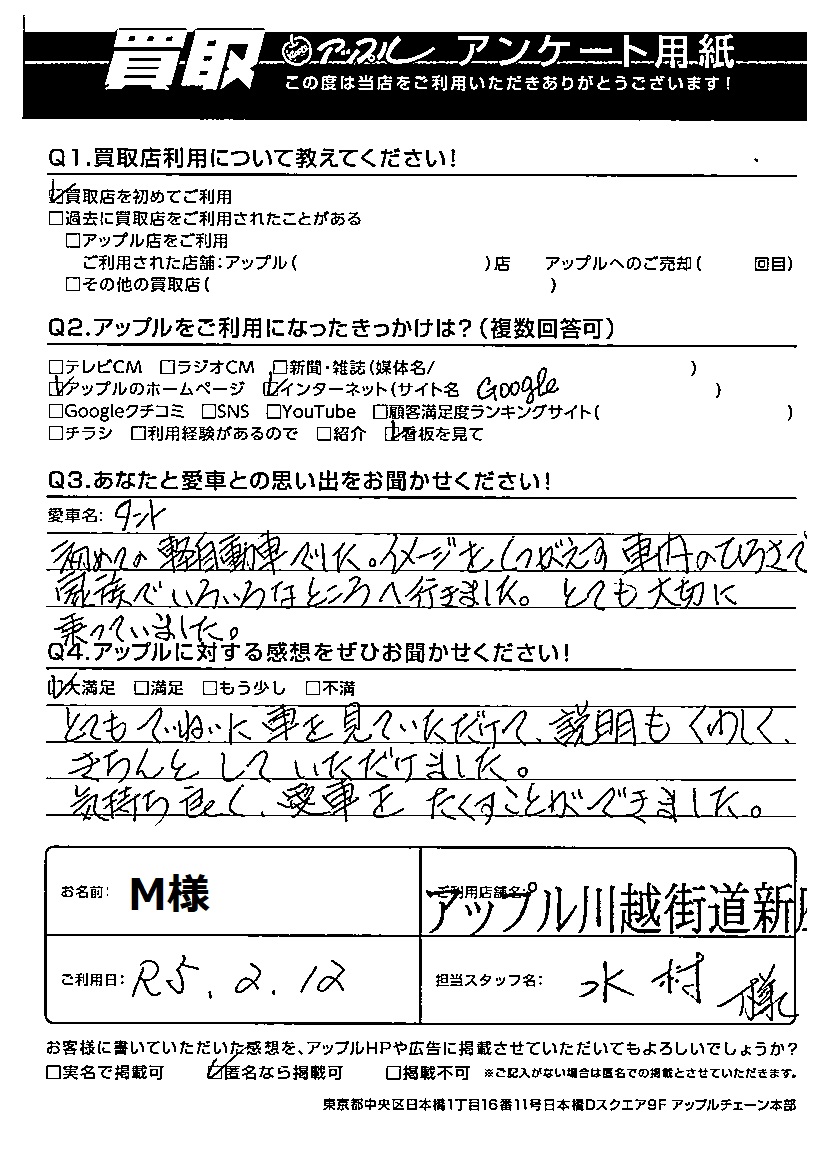 買取 アップル アンケート用紙
この度は当店をご利用いただきありがとうございます!
Q1.買取店利用について教えてください!
☑買取店を初めてご利用
□過去に買取店をご利用されたことがある
□アップル店をご利用
ご利用された店舗:アップル( )店 アップルへのご売却( 回目)
□その他の買取店( )
Q2.アップルをご利用になったきっかけは?(複数回答可)
□テレビCM □ラジオCM □新聞・雑誌(媒体名/ )
☑アップルのホームページ ☑インターネット(サイト名 Google )
□Googleクチコミ □SNS □YouTube □顧客満足度ランキングサイト( )
□チラシ □利用経験があるので □紹介 ☑看板を見て
Q3.あなたと愛車との思い出をお聞かせください!
愛車名: タント
初めての軽自動車でした。イメージをくつがえす車内のひろさで
家族でいろいろなところへ行きました。とても大切に
乗っていました。
Q4.アップルに対する感想をぜひお聞かせください!
☑大満足 □満足 □もう少し □不満
とてもていねいに車を見ていただけて、説明もくわしく、
きちんとしていただけました。
気持ち良く、愛車をたくすことができました。
お名前: M様
ご利用店舗名:
アップル川越街道新
ご利用日: R5.2.12
担当スタッフ名: 水村 様
お客様に書いていただいた感想を、アップルHPや広告に掲載させていただいてもよろしいでしょうか?
□実名で掲載可 ☑匿名なら掲載可 □掲載不可 ※ご記入がない場合は匿名での掲載とさせていただきます。
東京都中央区日本橋1丁目16番11号日本橋Dスクエア9F アップルチェーン本部